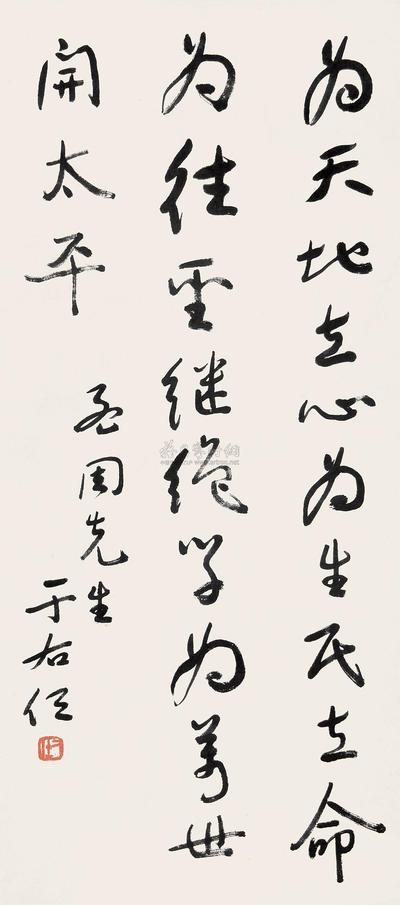 为天地立心为生民立命
为往圣继绝学为万世
開太平
孟周先生
于右任